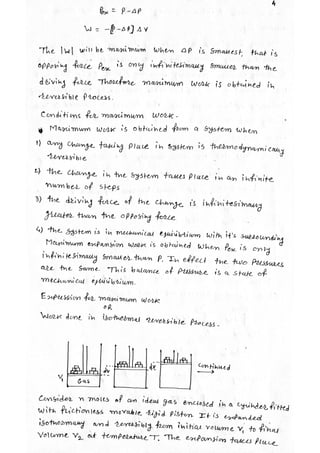 4
Pex = P-ΔP
W = -[P-ΔP] ΔV
The |W| will be maximum when ΔP is smallest, that is
opposing force Pex is only infinitesimally smaller than the
driving force Therefore maximum work is obtained in
reversible Process.
Conditions for maximum work -
Maximum work is obtained from a system when
1) any change taking place in system is thermodynamically
reversible
2) the change in the system takes place in an infinite
number of steps
3) the driving force of the change is infinitesimally
greater than the opposing force
4) the system is in mechanical equilibrium with it's surrounding
Maximum expansion work is obtained when Pex is only
infinitesimally smaller than P. In effect the two Pressures
are the same. This balance of Pressure is a state of
mechanical equilibrium.
Expression for maximum work
OR
Work done in isothermal reversible Process -
continued
V1 Gas
Consider n moles of an ideal gas enclosed in a cylinder fitted
with frictionless movable rigid piston It is expanded
isothermally and reversibly from initial volume V1 to final
Volume V2 at temperature T. The expansion takes place